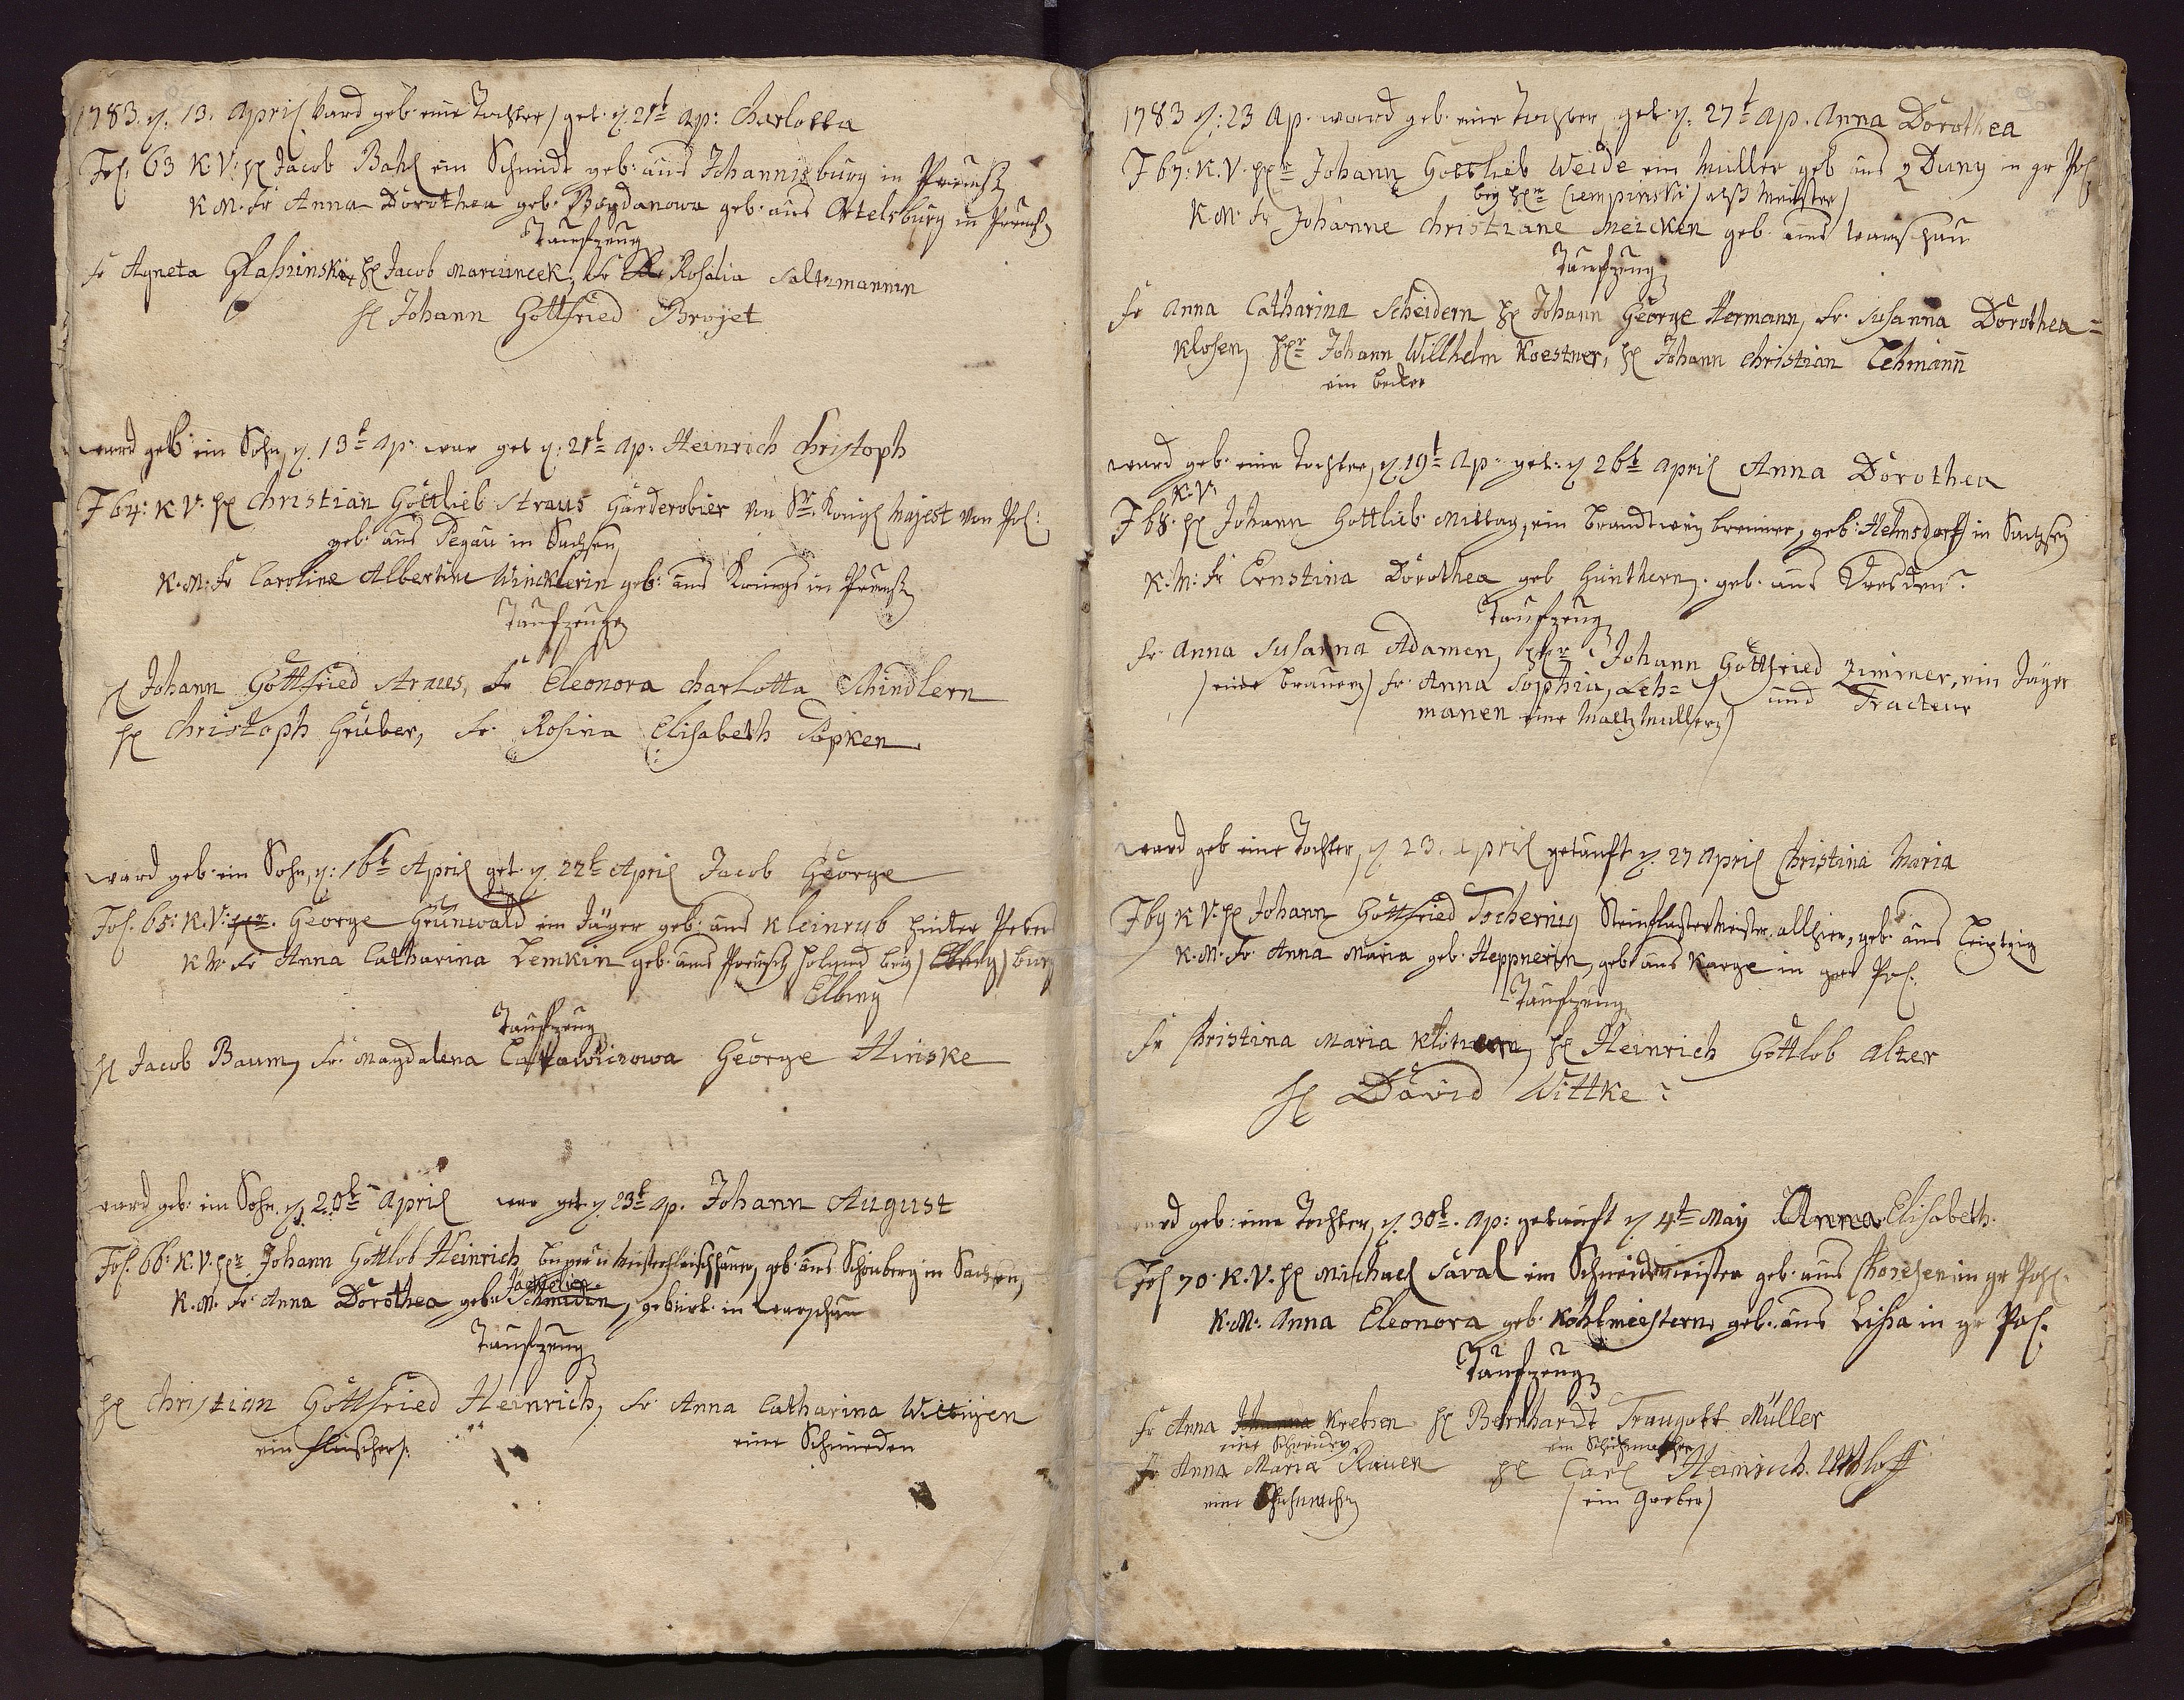 1783. d. 13. April ward geb. eine Tochter, get. d. 21t Ap: Charlotta
Fol. 63 K V: H Jacob Bahl ein Schmidt geb: aus Johannisburg in Preuß
K. M. Fr Anna Dorothea geb. Bogdanowa geb. aus Ortelsburg in Preuß
Taufzeug
Fr Agneta H Jacob Fr Rosalia Saltzmannin
H Johann Gottfried Brojet
ward geb: ein Sohn, d. 13t Ap: war get d: 21t Ap: Heinrich Christoph
F 64: K V. H Christian Gottlieb Straus Garderobier von Sr. Königl Majest von Pol:
geb: aus Pegau in Sachsen
K. M: Fr Caroline Albertine Wincklerin geb: aus in Preuß
Taufzeuge
H Johann Gottfried Straus, Fr Eleonora Charlotta Schindlern
H Christoph Gruber, Fr. Rosina Elisabeth Papken
ward geb. ein Sohn, d: 16t April get d. 22t April Jacob George
Fol. 65: K. V: George Grunwald ein Jäger geb: aus Kleinrub hinter Peter
K M Fr Anna Catharina Lemkin geb. aus Preusch Holand bey burg
Elbing
Taufzeug
H Jacob Baum, Fr. Magdalena George Hinske
ward geb. ein Sohn d. 20t April war get d. 23t Ap. Johann August
Fol. 66: K. V. Hr Johann Gottlob Heinrich, Burger u Meister Fleischhauer, geb. aus Schönberg in Sachsen,
K. M. Fr. Anna Dorothea geb. Schmidin, gebürt. in Warschau
Taufzeug
H Christian Gottfried Heinrich, Fr. Anna Catharina Wittigen
ein Fleischer. eine Schmieden
1783 d: 23 Ap. ward geb. eine Tochter, get d. 27t Ap. Anna Dorothea
F 67: K. V. Hr Johann Gottlieb Weide ein Muller geb aus Duny in gr Pol
bey Hrn Ciempinski) alß Meister)
K. M. Fr Johanne Christiane Meicken geb. aus Warschau
Taufzeug
Fr Anna Catharina Scheidern H Johann George Hermann, Fr. Susanna Dorothea=
Klosen, Hr Johann Willhelm Koestner, H Johann Christian Lehmann
ein Becker
ward geb. eine Tochter, d. 19t Ap. get: d 26t April Anna Dorothea
K. V.
F 68. H Johann Gottlieb Mittag, ein Brandtwein brenner, geb. Helmsdorff in Sachsen
K. M: Fr Ernstina Dorothea geb Günthern. geb. aus Dresden.
Taufzeug
Fr. Anna Susanna Adamen, Hr Johann Gottfried Zimmer, ein Jäger
(eine Brauern) Fr. Anna Sophia, Leh= und Tracteur
manen eine Maltz Mullern)
ward geb eine Tochter, d 23. April getauft d. 27 April Christina Maria
F 69 K V. H Johann Gottfried Tschernig Steinflaster Meister allhier, geb: aus Leiptzig
K. M. Fr. Anna Maria geb. Heppnerin, geb. aus Karge in gros Pol.
Taufzeug
Fr Christina Maria H Heinrich Gottlob Alter
H David Wittke
ward geb: eine Tochter, d. 30t. Ap: getauft d 4t May Anna Elisabeth.
Fol 70. K. V. H Michael Saval ein Schneidemeister geb. aus in gr Pohl.
K. M. Anna Eleonora geb. Kohlmeistern, geb. aus Lissa in gr Pol.
Taufzeug
Fr Anna Krebsen H Bernhardt Traugott Müller
eine Schneidern ein Schuhmacher
Fr Anna Maria Rauen H Carl Heinrich Uhloff
eine Schuhmachern (ein Gerber)